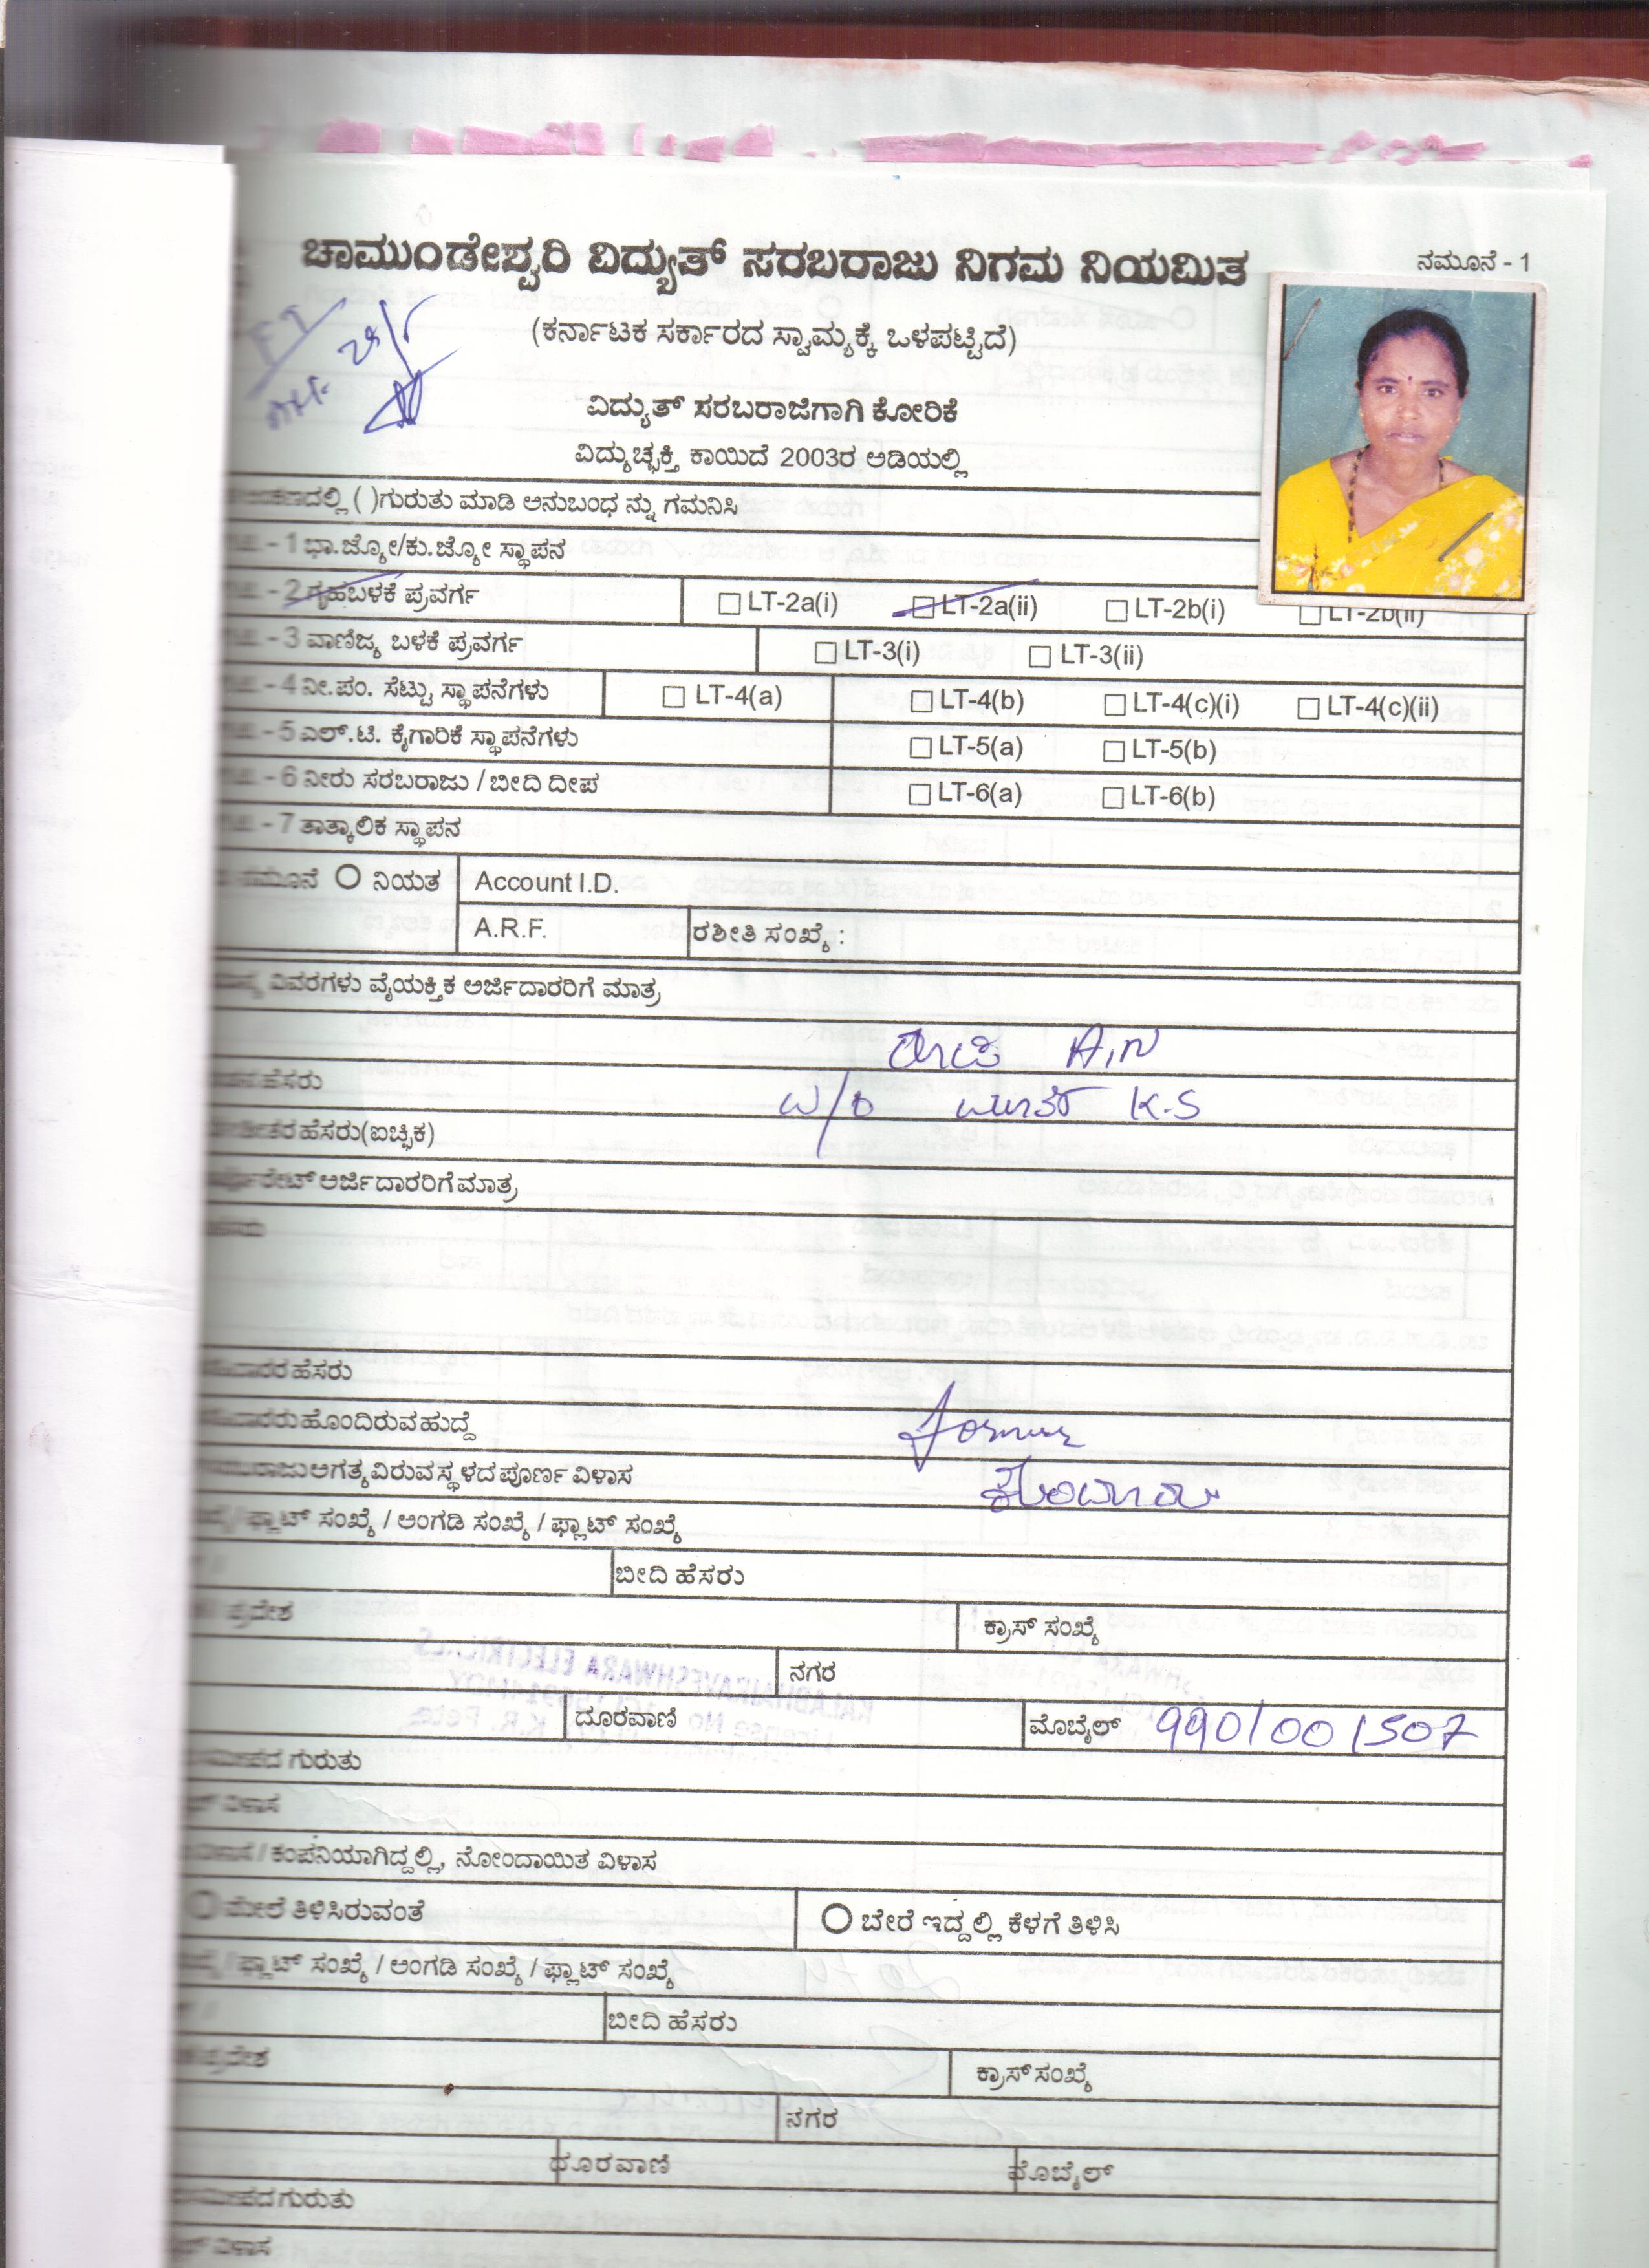 ಚಾಮುಂಡೇಶ್ವರಿ ವಿದ್ಯುತ್ ಸರಬರಾಜು ನಿಗಮ ನಿಯಮಿತ
ನಮೂನೆ - 1
(ಕರ್ನಾಟಕ ಸರ್ಕಾರದ ಸ್ವಾಮ್ಯಕ್ಕೆ ಒಳಪಟ್ಟಿದೆ)
ವಿದ್ಯುತ್ ಸರಬರಾಜಿಗಾಗಿ ಕೋರಿಕೆ
ವಿದ್ಯುಚ್ಛಕ್ತಿ ಕಾಯಿದೆ 2003ರ ಅಡಿಯಲ್ಲಿ
( )ಗುರುತು ಮಾಡಿ ಅನುಬಂಧ ನ್ನು ಗಮನಿಸಿ
- 1 ಭಾ.ಜ್ಯೋ/ಕು.ಜ್ಯೋ ಸ್ಥಾಪನ
- 2 ಗೃಹಬಳಕೆ ಪ್ರವರ್ಗ LT-2a(i) LT-2a(ii) LT-2b(i) LT-2b(ii)
- 3 ವಾಣಿಜ್ಯ ಬಳಕೆ ಪ್ರವರ್ಗ LT-3(i) LT-3(ii)
- 4 ನೀ.ಪಂ. ಸೆಟ್ಟು ಸ್ಥಾಪನೆಗಳು LT-4(a) LT-4(b) LT-4(c)(i) LT-4(c)(ii)
- 5 ಎಲ್.ಟಿ. ಕೈಗಾರಿಕೆ ಸ್ಥಾಪನೆಗಳು LT-5(a) LT-5(b)
- 6 ನೀರು ಸರಬರಾಜು / ಬೀದಿ ದೀಪ LT-6(a) LT-6(b)
- 7 ತಾತ್ಕಾಲಿಕ ಸ್ಥಾಪನ
ನಮೂನೆ ನಿಯತ Account I.D.
A.R.F. ರಶೀತಿ ಸಂಖ್ಯೆ :
ವಿವರಗಳು ವೈಯಕ್ತಿಕ ಅರ್ಜಿದಾರರಿಗೆ ಮಾತ್ರ
A.N
ಹೆಸರು W/O K.S
ಹೆಸರು(ಐಚ್ಛಿಕ)
ಅರ್ಜಿದಾರರಿಗೆ ಮಾತ್ರ
ಹೆಸರು
ಹೊಂದಿರುವ ಹುದ್ದೆ
ಅಗತ್ಯವಿರುವ ಸ್ಥಳದ ಪೂರ್ಣ ವಿಳಾಸ
/ ಫ್ಲಾಟ್ ಸಂಖ್ಯೆ / ಅಂಗಡಿ ಸಂಖ್ಯೆ / ಫ್ಲಾಟ್ ಸಂಖ್ಯೆ
ಬೀದಿ ಹೆಸರು
ಪ್ರದೇಶ ಕ್ರಾಸ್ ಸಂಖ್ಯೆ
ನಗರ
ದೂರವಾಣಿ ಮೊಬೈಲ್ 9901001507
ಗುರುತು
ವಿಳಾಸ
ವಿಳಾಸ / ಕಂಪನಿಯಾಗಿದ್ದಲ್ಲಿ, ನೋಂದಾಯಿತ ವಿಳಾಸ
ಮೇಲೆ ತಿಳಿಸಿರುವಂತೆ ಬೇರೆ ಇದ್ದಲ್ಲಿ ಕೆಳಗೆ ತಿಳಿಸಿ
/ ಫ್ಲಾಟ್ ಸಂಖ್ಯೆ / ಅಂಗಡಿ ಸಂಖ್ಯೆ / ಫ್ಲಾಟ್ ಸಂಖ್ಯೆ
ಬೀದಿ ಹೆಸರು
ಪ್ರದೇಶ ಕ್ರಾಸ್ ಸಂಖ್ಯೆ
ನಗರ
ದೂರವಾಣಿ ಮೊಬೈಲ್
ಗುರುತು
ವಿಳಾಸ